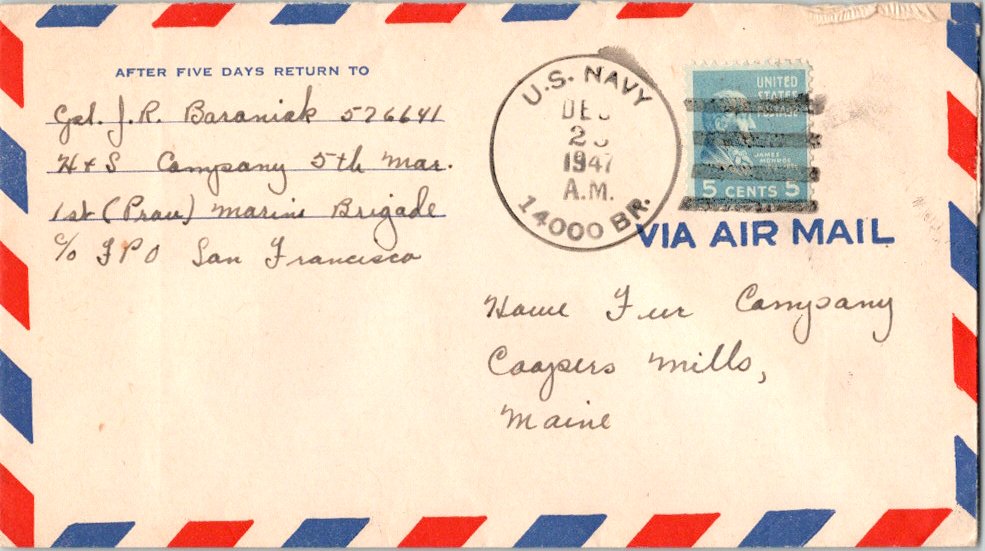 AFTER FIVE DAYS RETURN TO
Cpl. J.R. Baraniak 576641
H & S Company 5th Mar.
1st (Prov) Marine Brigade
c/o FPO San Francisco
U.S. NAVY
DEC
1947
A.M.
14000 BR.
UNITED
STATES
POSTAGE
JAMES
MONROE
5 CENTS 5
VIA AIR MAIL
Home Fur Company
Coopers Mills,
Maine